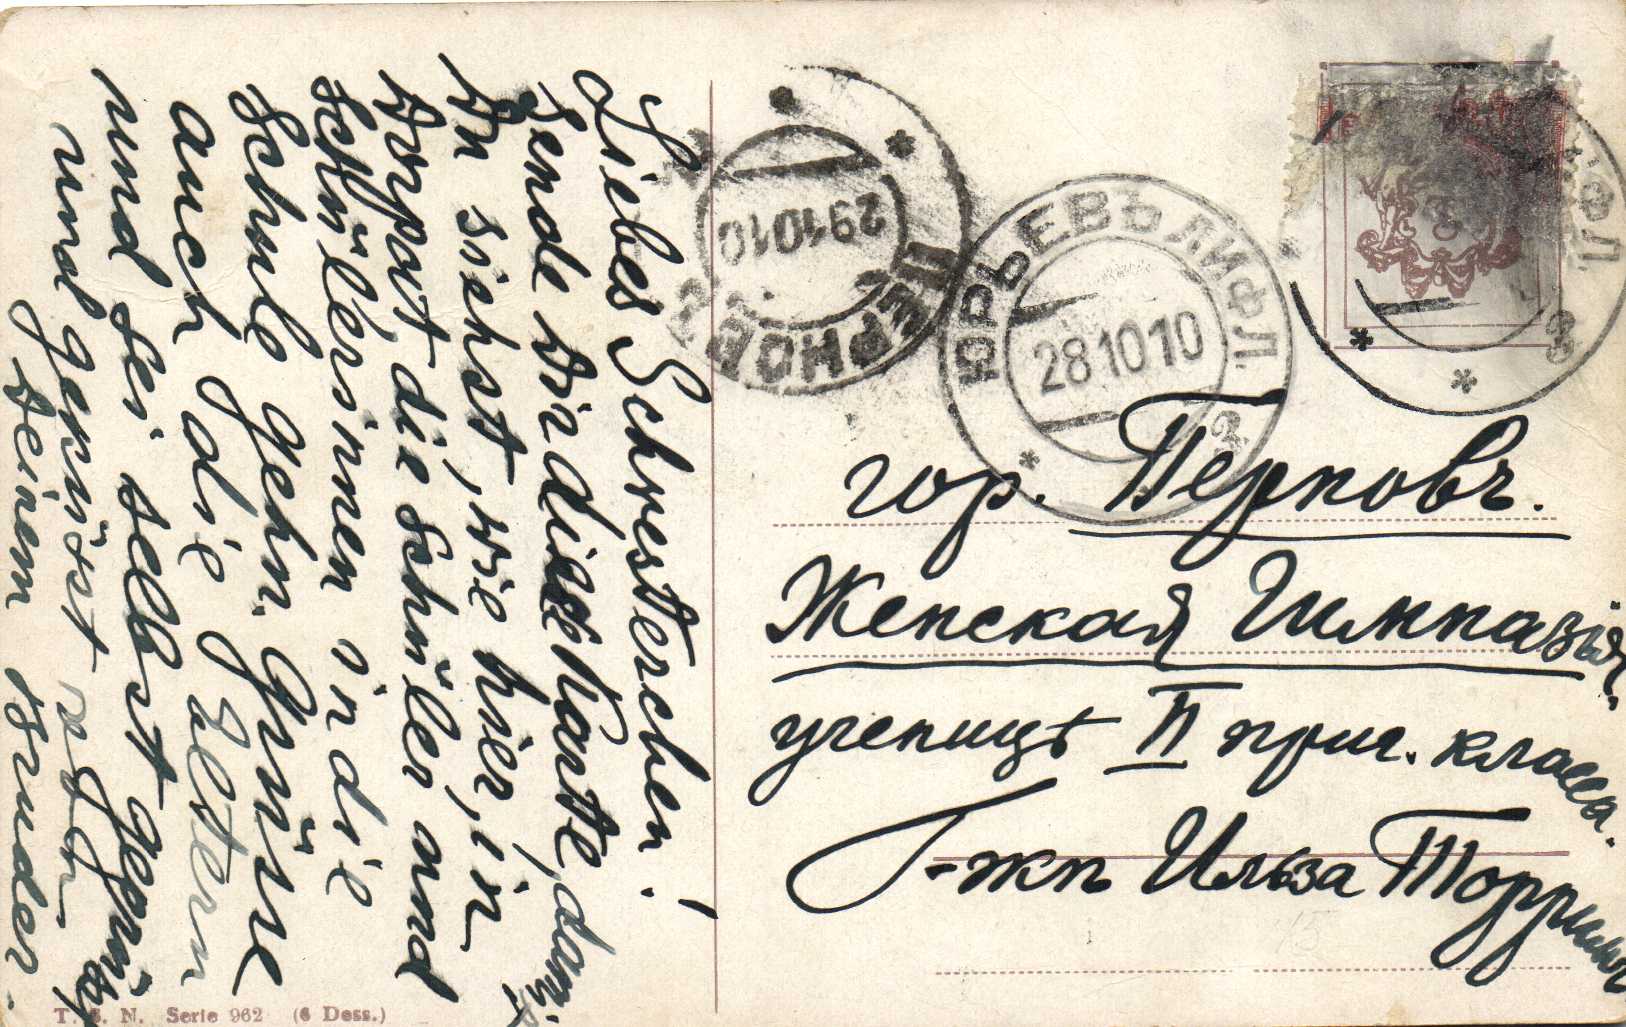 Liebes Schwesterchen!
Sende Dir diese Karte, damit
Du siehst, wie hier, in
Dorpat die Schüler und
Schülerinnen in die
Schule gehn. Grüsse
auch die Eltern
und sei selbst geküsst
und gegrüsst von
Deinem Bruder.
T. S. N. Serie 962 (6 Dess.)
ПЕРНОВЪ
291010
ЮРЬЕВЪ ЛИФЛ.
281010
ИФЛ.
гор. Перновъ.
Женская Гимназія.
ученицѣ II приг. класса.
Г-жѣ Ильза
15